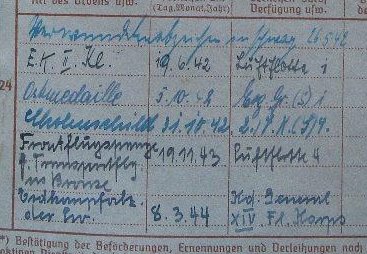 Art des Ordens usw.
(Tag, Monat, Jahr)
Verfügung usw.
Verwundetenabzeichen in schwarz 26.5.42
E.K. II. Kl. 19.6.42 Luftflotte 1
24 Ostmedaille 5.10.42
Cholmschild 31.10.42
Frontflugspange
f. Transportflg. 19.11.43 Luftflotte 4
in Bronze
Erdkampfabz. Kdg. General
der Lw. 8.3.44 XIV. Fl. Korps
*) Bestätigung der Beförderungen, Ernennungen und Verleihungen nach